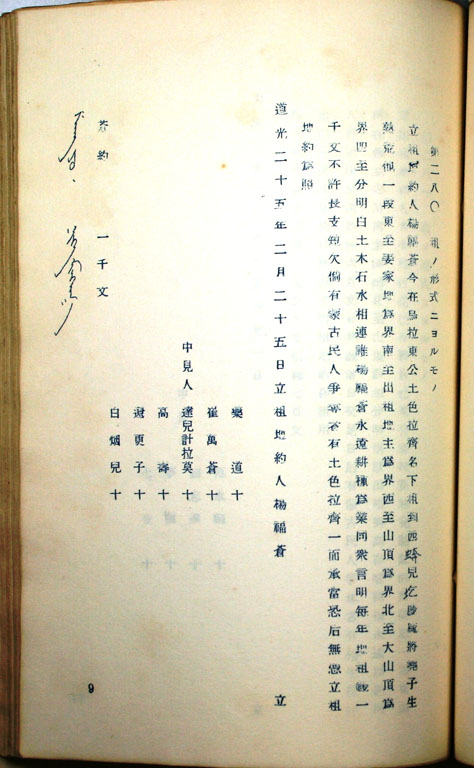 第二八〇 租ノ形式ニヨルモノ
立租地約人楊福蒼今在烏拉東公土色拉齊名下租到西 兒圪 將堯子生
熟荒地一段東至姜家地爲界南至出租地主爲界西至山頂爲界北至大山頂爲
界四至分明白土木石水相連誰楊福蒼永遠耕種爲業同衆言明每年地租錢一
千文不許長支短欠倘有蒙古民人爭奪者有土色拉齊一面承當恐后無憑立租
地約爲照
道光二十五年二月二十五日立租地約人楊福蒼 立
欒道十
崔萬蒼十
中見人 達兒計拉莫十
高壽十
趙更子十
白烟兒十
茶約 一千文
9